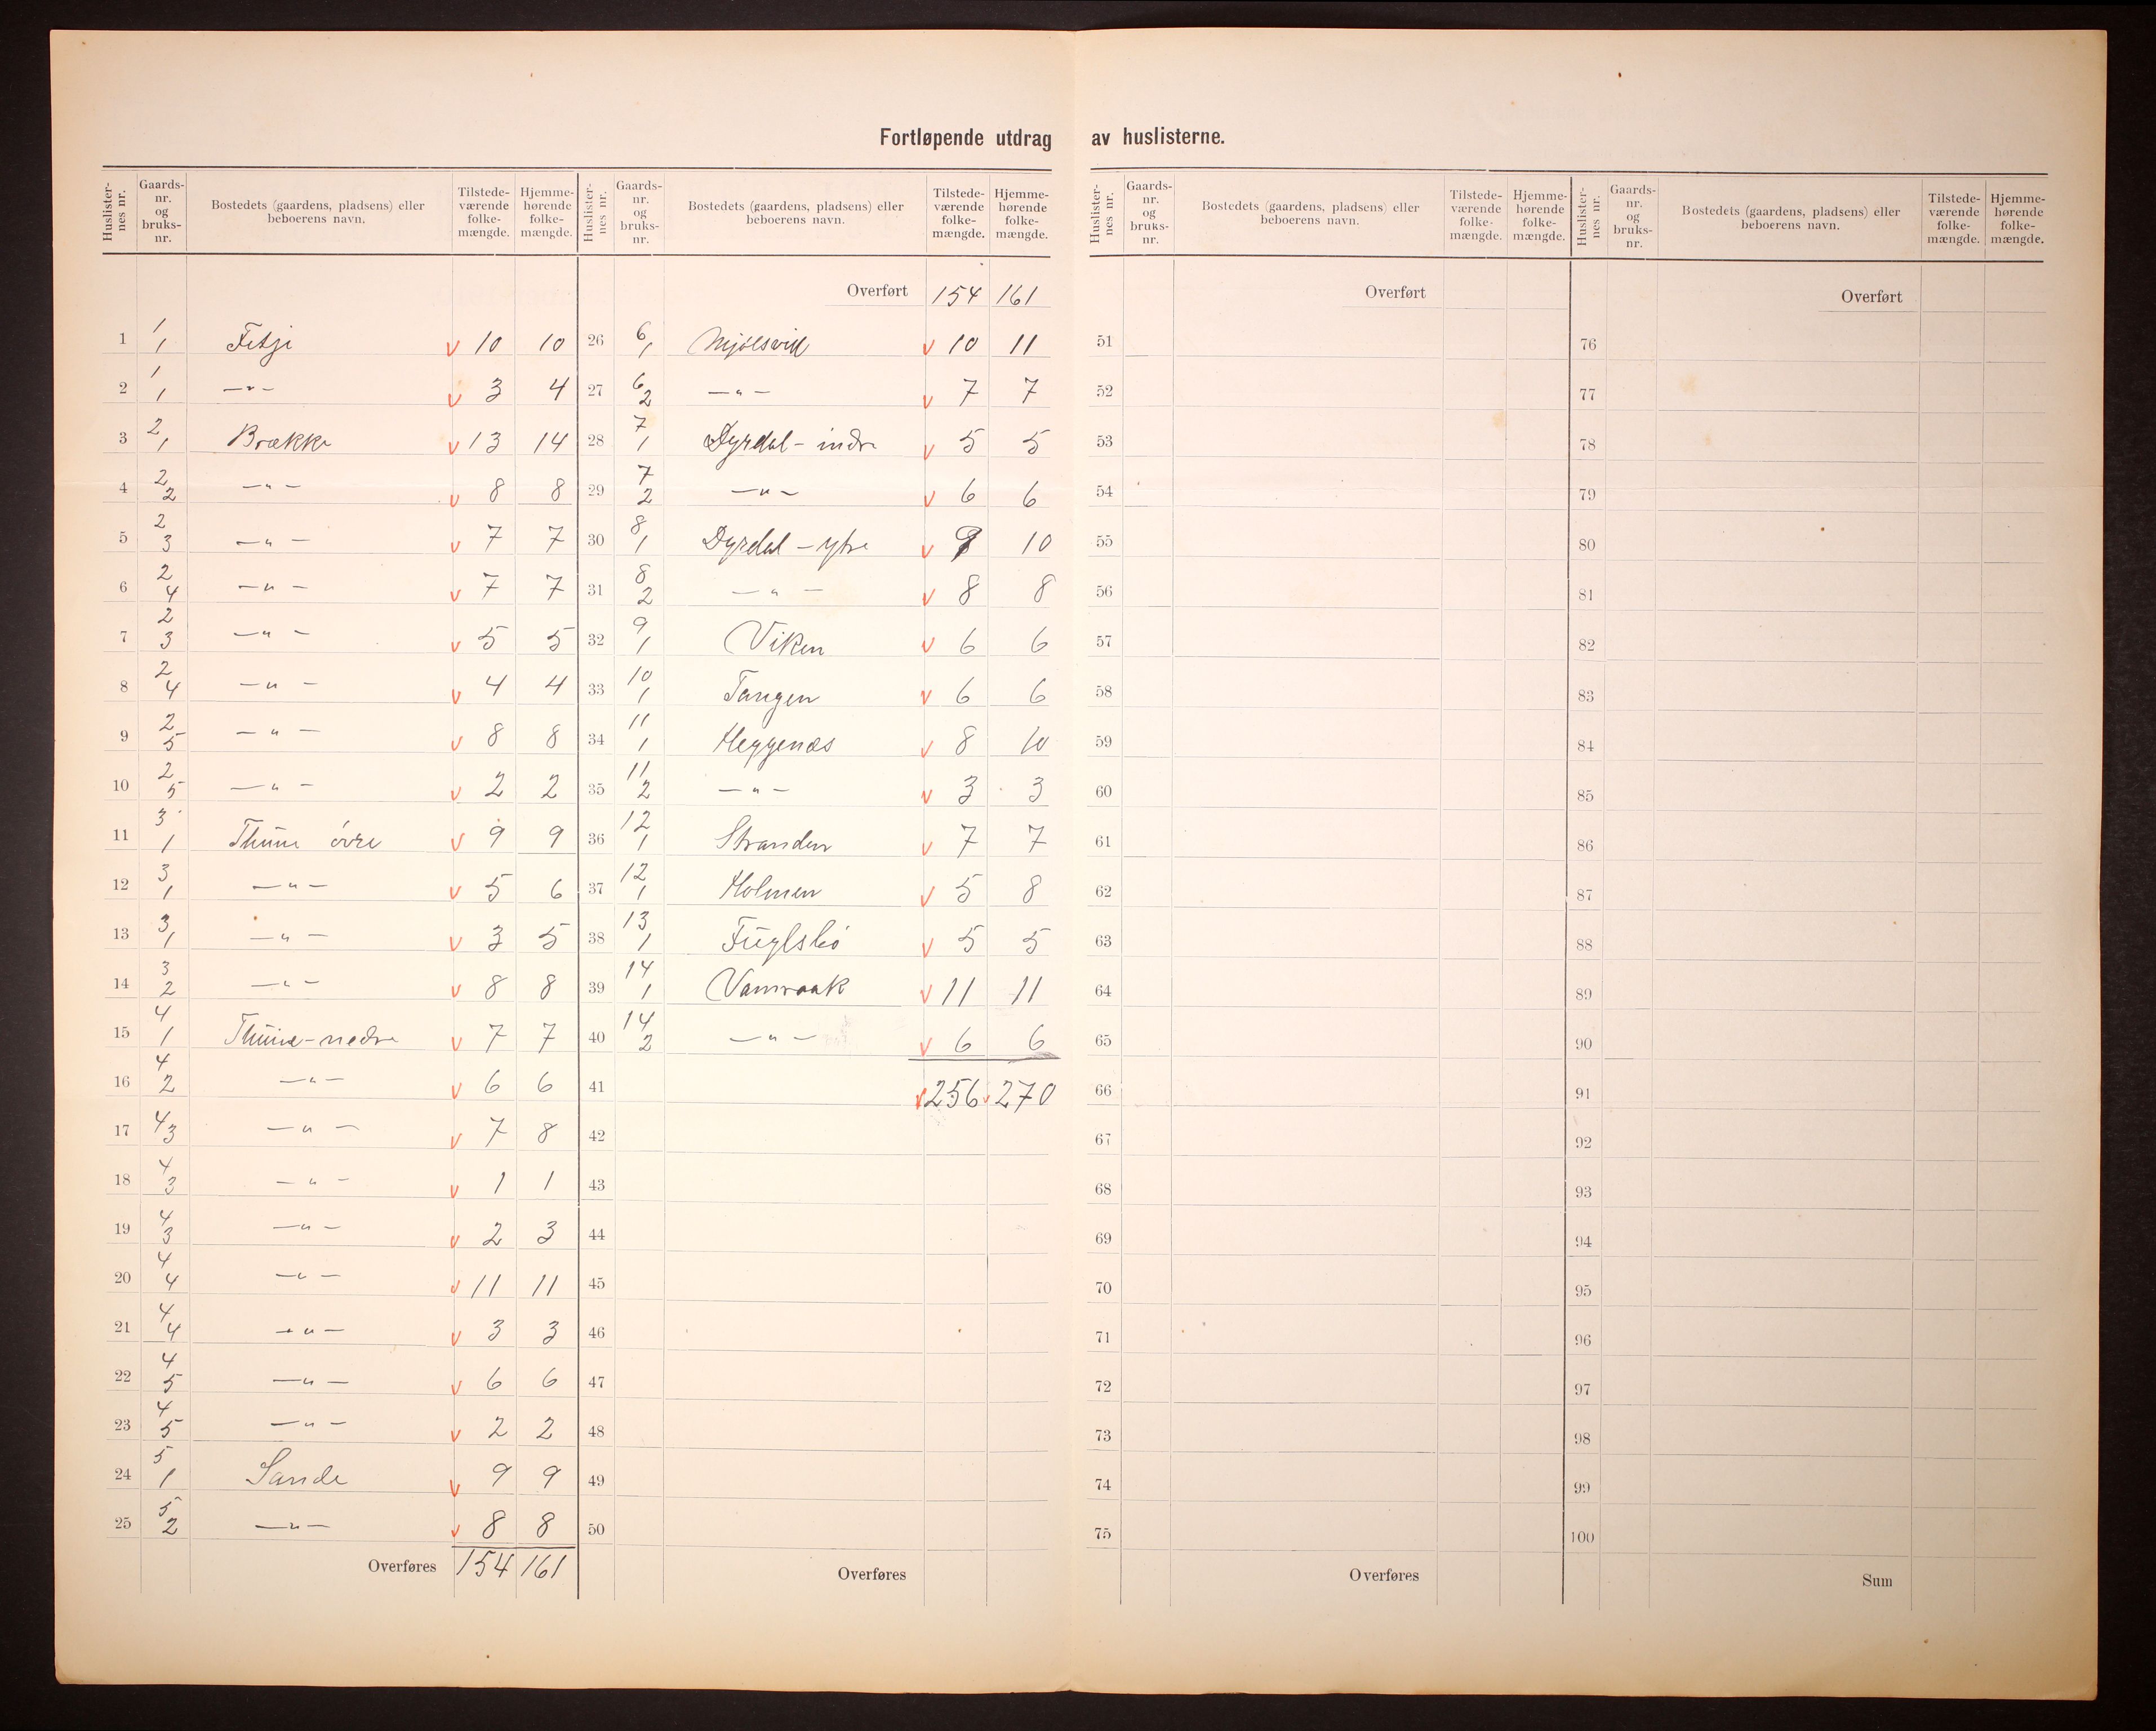 Fortløpende utdrag av huslisterne.
Huslister-nes nr. | Gaards-nr. og bruks-nr. | Bostedets (gaardens, pladsens) eller beboerens navn. | Tilstede-værende folke-mængde. | Hjemme-hørende folke-mængde.
1 | 1/1 | Fitje | v 10 | 10
2 | 1/1 | —"— | v 3 | 4
3 | 2/1 | Brække | v 13 | 14
4 | 2/2 | —"— | v 8 | 8
5 | 2/3 | —"— | v 7 | 7
6 | 2/4 | —"— | v 7 | 7
7 | 2/3 | —"— | v 5 | 5
8 | 2/4 | —"— | v 4 | 4
9 | 2/5 | —"— | v 8 | 8
10 | 2/5 | —"— | v 2 | 2
11 | 3/1 | Thune övre | v 9 | 9
12 | 3/1 | —"— | v 5 | 6
13 | 3/1 | —"— | v 3 | 5
14 | 3/2 | —"— | v 8 | 8
15 | 4/1 | Thune-nedre | v 7 | 7
16 | 4/2 | —"— | v 6 | 6
17 | 4/3 | —"— | v 7 | 8
18 | 4/3 | —"— | v 1 | 1
19 | 4/3 | —"— | v 2 | 3
20 | 4/4 | —"— | v 11 | 11
21 | 4/4 | —"— | v 3 | 3
22 | 4/5 | —"— | v 6 | 6
23 | 4/5 | —"— | v 2 | 2
24 | 5/1 | Sande | v 9 | 9
25 | 5/2 | —"— | v 8 | 8
Overføres 154 161
Huslister-nes nr. | Gaards-nr. og bruks-nr. | Bostedets (gaardens, pladsens) eller beboerens navn. | Tilstede-værende folke-mængde. | Hjemme-hørende folke-mængde.
Overført 154 161
26 | 6/1 | Mjölsvik | v 10 | 11
27 | 6/2 | —"— | v 7 | 7
28 | 7/1 | Dyrdal - indre | v 5 | 5
29 | 7/2 | —"— | v 6 | 6
30 | 8/1 | Dyrdal - ytre | v 9 | 10
31 | 8/2 | —"— | v 8 | 8
32 | 9/1 | Viken | v 6 | 6
33 | 10/1 | Tangen | v 6 | 6
34 | 11/1 | Heggenæs | v 8 | 10
35 | 11/2 | —"— | v 3 | 3
36 | 12/1 | Stranden | v 7 | 7
37 | 12/1 | Holmen | v 5 | 8
38 | 13/1 | Fuglsbö | v 5 | 5
39 | 14/1 | Vamraak | v 11 | 11
40 | 14/2 | —"— | v 6 | 6
41 | v 256 | v 270
42
43
44
45
46
47
48
49
50
Overføres
Huslister-nes nr. | Gaards-nr. og bruks-nr. | Bostedets (gaardens, pladsens) eller beboerens navn. | Tilstede-værende folke-mængde. | Hjemme-hørende folke-mængde.
Overført
51
52
53
54
55
56
57
58
59
60
61
62
63
64
65
66
67
68
69
70
71
72
73
74
75
Overføres
Huslister-nes nr. | Gaards-nr. og bruks-nr. | Bostedets (gaardens, pladsens) eller beboerens navn. | Tilstede-værende folke-mængde. | Hjemme-hørende folke-mængde.
Overført
76
77
78
79
80
81
82
83
84
85
86
87
88
89
90
91
92
93
94
95
96
97
98
99
100
Sum